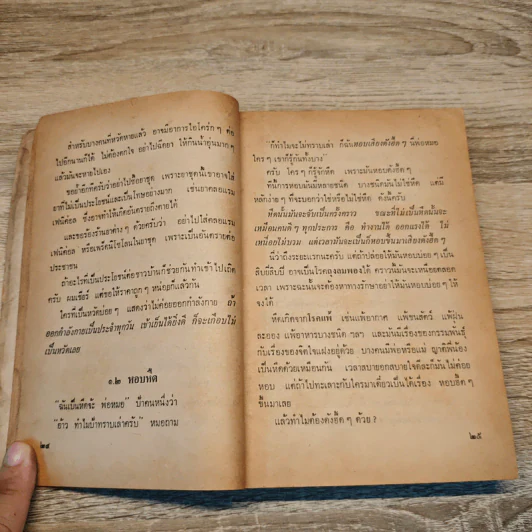 สำหรับบางคนที่หวัดหายแล้ว อาจมีอาการไอโครก ๆ ต่อ
ไปอีกนานก็ได้ ไม่ต้องตกใจ อย่าไปฉีดยา ให้กินน้ำอุ่นมาก ๆ
แล้วมันจะหายไปเอง
ขอย้ำอีกทีครับว่าอย่าไปซื้อยาชุด เพราะยาชุดนี้เขาเอายา
ที่ไม่เป็นประโยชน์และเป็นโทษอย่างมาก เช่นยาคลอแรม
เฟนิคอล ซึ่งอาจทำให้เกิดอันตรายถึงตายได้
และขอร้องร้านยาต่าง ๆ ด้วยครับว่า อย่าไปใส่คลอแรม
เฟนิคอล หรือเพร็ดนิโซโลนในยาชุด เพราะเป็นอันตรายต่อ
ประชาชน
ถ้าอะไรที่เป็นประโยชน์ต่อชาวบ้านก็ช่วยกันทำเข้าไปเถิด
ครับ ผมเชียร์ แต่ขอให้ราคาถูก ๆ หน่อยก็แล้วกัน
ใครที่เป็นหวัดบ่อย ๆ แสดงว่าไม่ค่อยออกกำลังกาย ถ้า
ออกกำลังกายเป็นประจำทุกวัน เข้าเย็นได้ยิ่งดี ก็จะเกือบไม่
เป็นหวัดเลย
๑.๒ หอบหืด
"ฉันเป็นหืดจ้ะ พ่อหมอ" ป้าคนหนึ่งว่า
"อ้าว ทำไมป้าทราบเล่าครับ" หมอถาม
๒๔
"ก็ทำไมจะไม่ทราบเล่า ก็ฉันหอบเสียงดังฮี้ด ๆ นี่พ่อหมอ
ใคร ๆ เขาก็รู้กันทั้งบาง"
ครับ ใคร ๆ ก็รู้จักหืด เพราะมันหอบดังฮี้ด ๆ
ที่นี้การหอบมันมีหลายชนิด บางชนิดมันไม่ใช่หืด แต่มี
หลักง่าย ๆ ที่จะบอกว่าใช่หรือไม่ใช่หืด ดังนี้ครับ
หืดนั้นมันจะจับเป็นครั้งคราว ขณะที่ไม่เป็นหืดนั้นจะ
เหมือนคนดี ๆ ทุกประการ คือ ทำงานได้ ออกแรงได้ ไม่
เหนื่อยไม่บวม แต่เวลามันจะเป็นก็หอบขึ้นมาเสียงดังฮี้ด ๆ
นี่ว่าถึงระยะแรกนะครับ แต่ถ้าปล่อยให้มันหอบบ่อย ๆ เป็น
สิบยี่สิบปี อาจเป็นโรคถุงลมพองได้ คราวนั้นมันจะเหนื่อยตลอด
เวลา เพราะฉะนั้นจะต้องหาทางรักษาอย่าให้มันหอบบ่อย ๆ ให้
จงได้
หืดเกิดจากโรคแพ้ เช่นแพ้อากาศ แพ้ขนสัตว์ แพ้ฝุ่น
ละออง แพ้อาหารบางชนิด ฯลฯ และมันมีเรื่องของกรรมพันธุ์
กับเรื่องของจิตใจแฝงอยู่ด้วย บางคนมีพ่อหรือแม่ ญาติพี่น้อง
เป็นหืดด้วยเหมือนกัน เวลาสบายอกสบายใจดีละก็มันไม่ค่อย
หอบ แต่ถ้าไปทะเลาะกับใครมาเดี๋ยวเป็นได้เรื่อง หอบฮี้ด ๆ
ขึ้นมาเลย
แล้วทำไมต้องดังฮี้ด ๆ ด้วย ?
๒๕